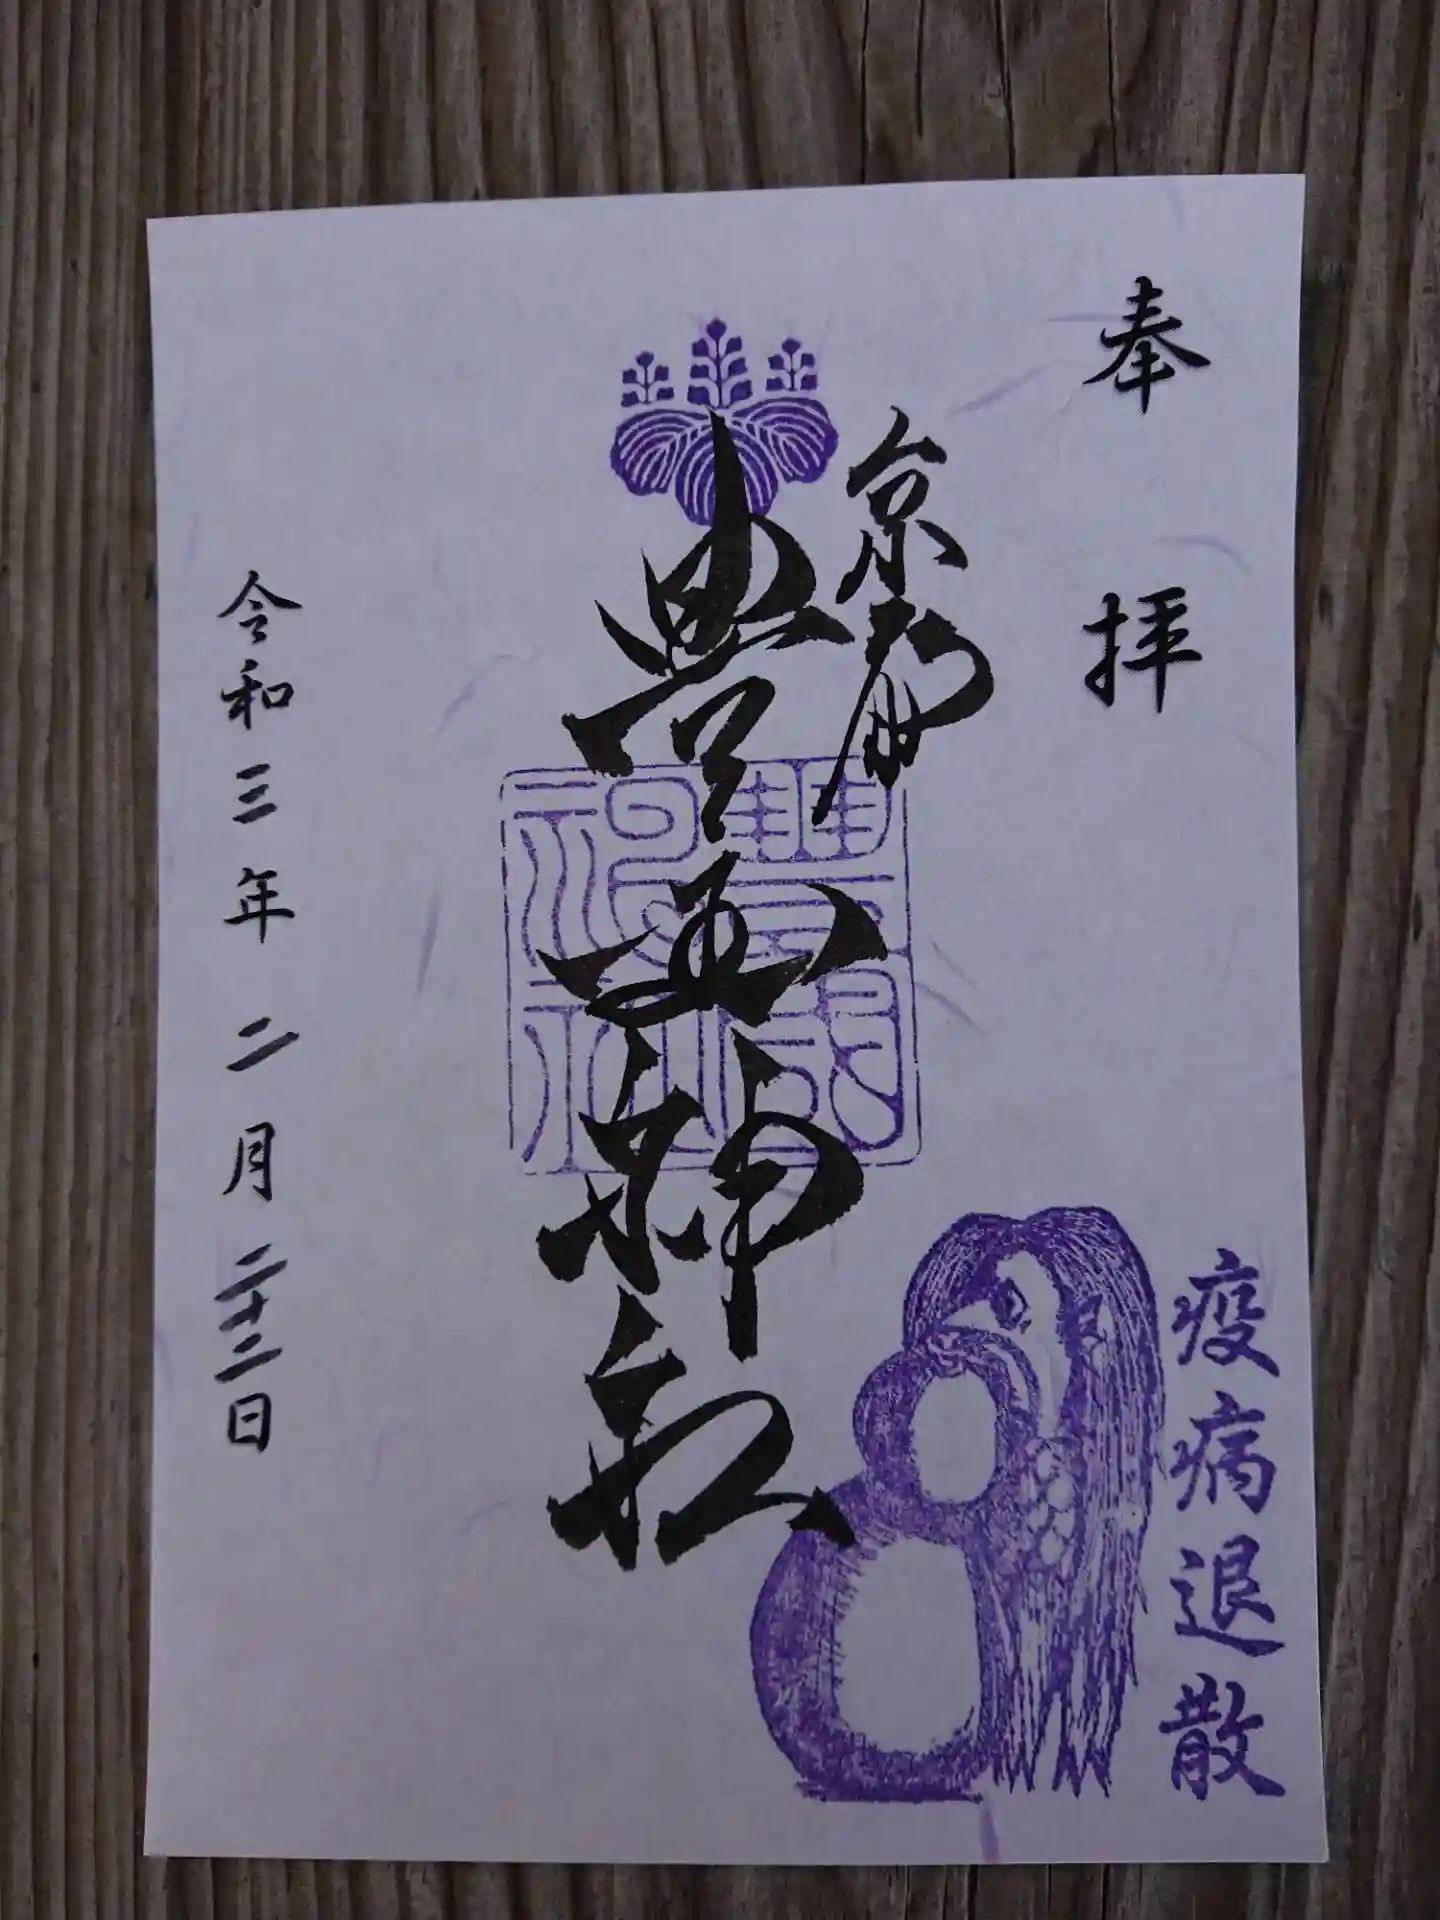 奉拝
疫病退散
京都
豊国神社
豊國神社
令和三年二月二十二日